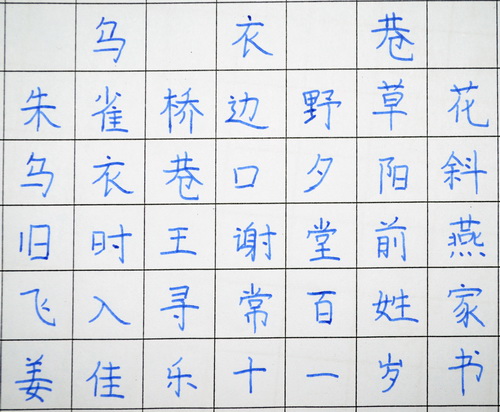 乌衣巷
朱雀桥边野草花
乌衣巷口夕阳斜
旧时王谢堂前燕
飞入寻常百姓家
姜佳乐十一岁书